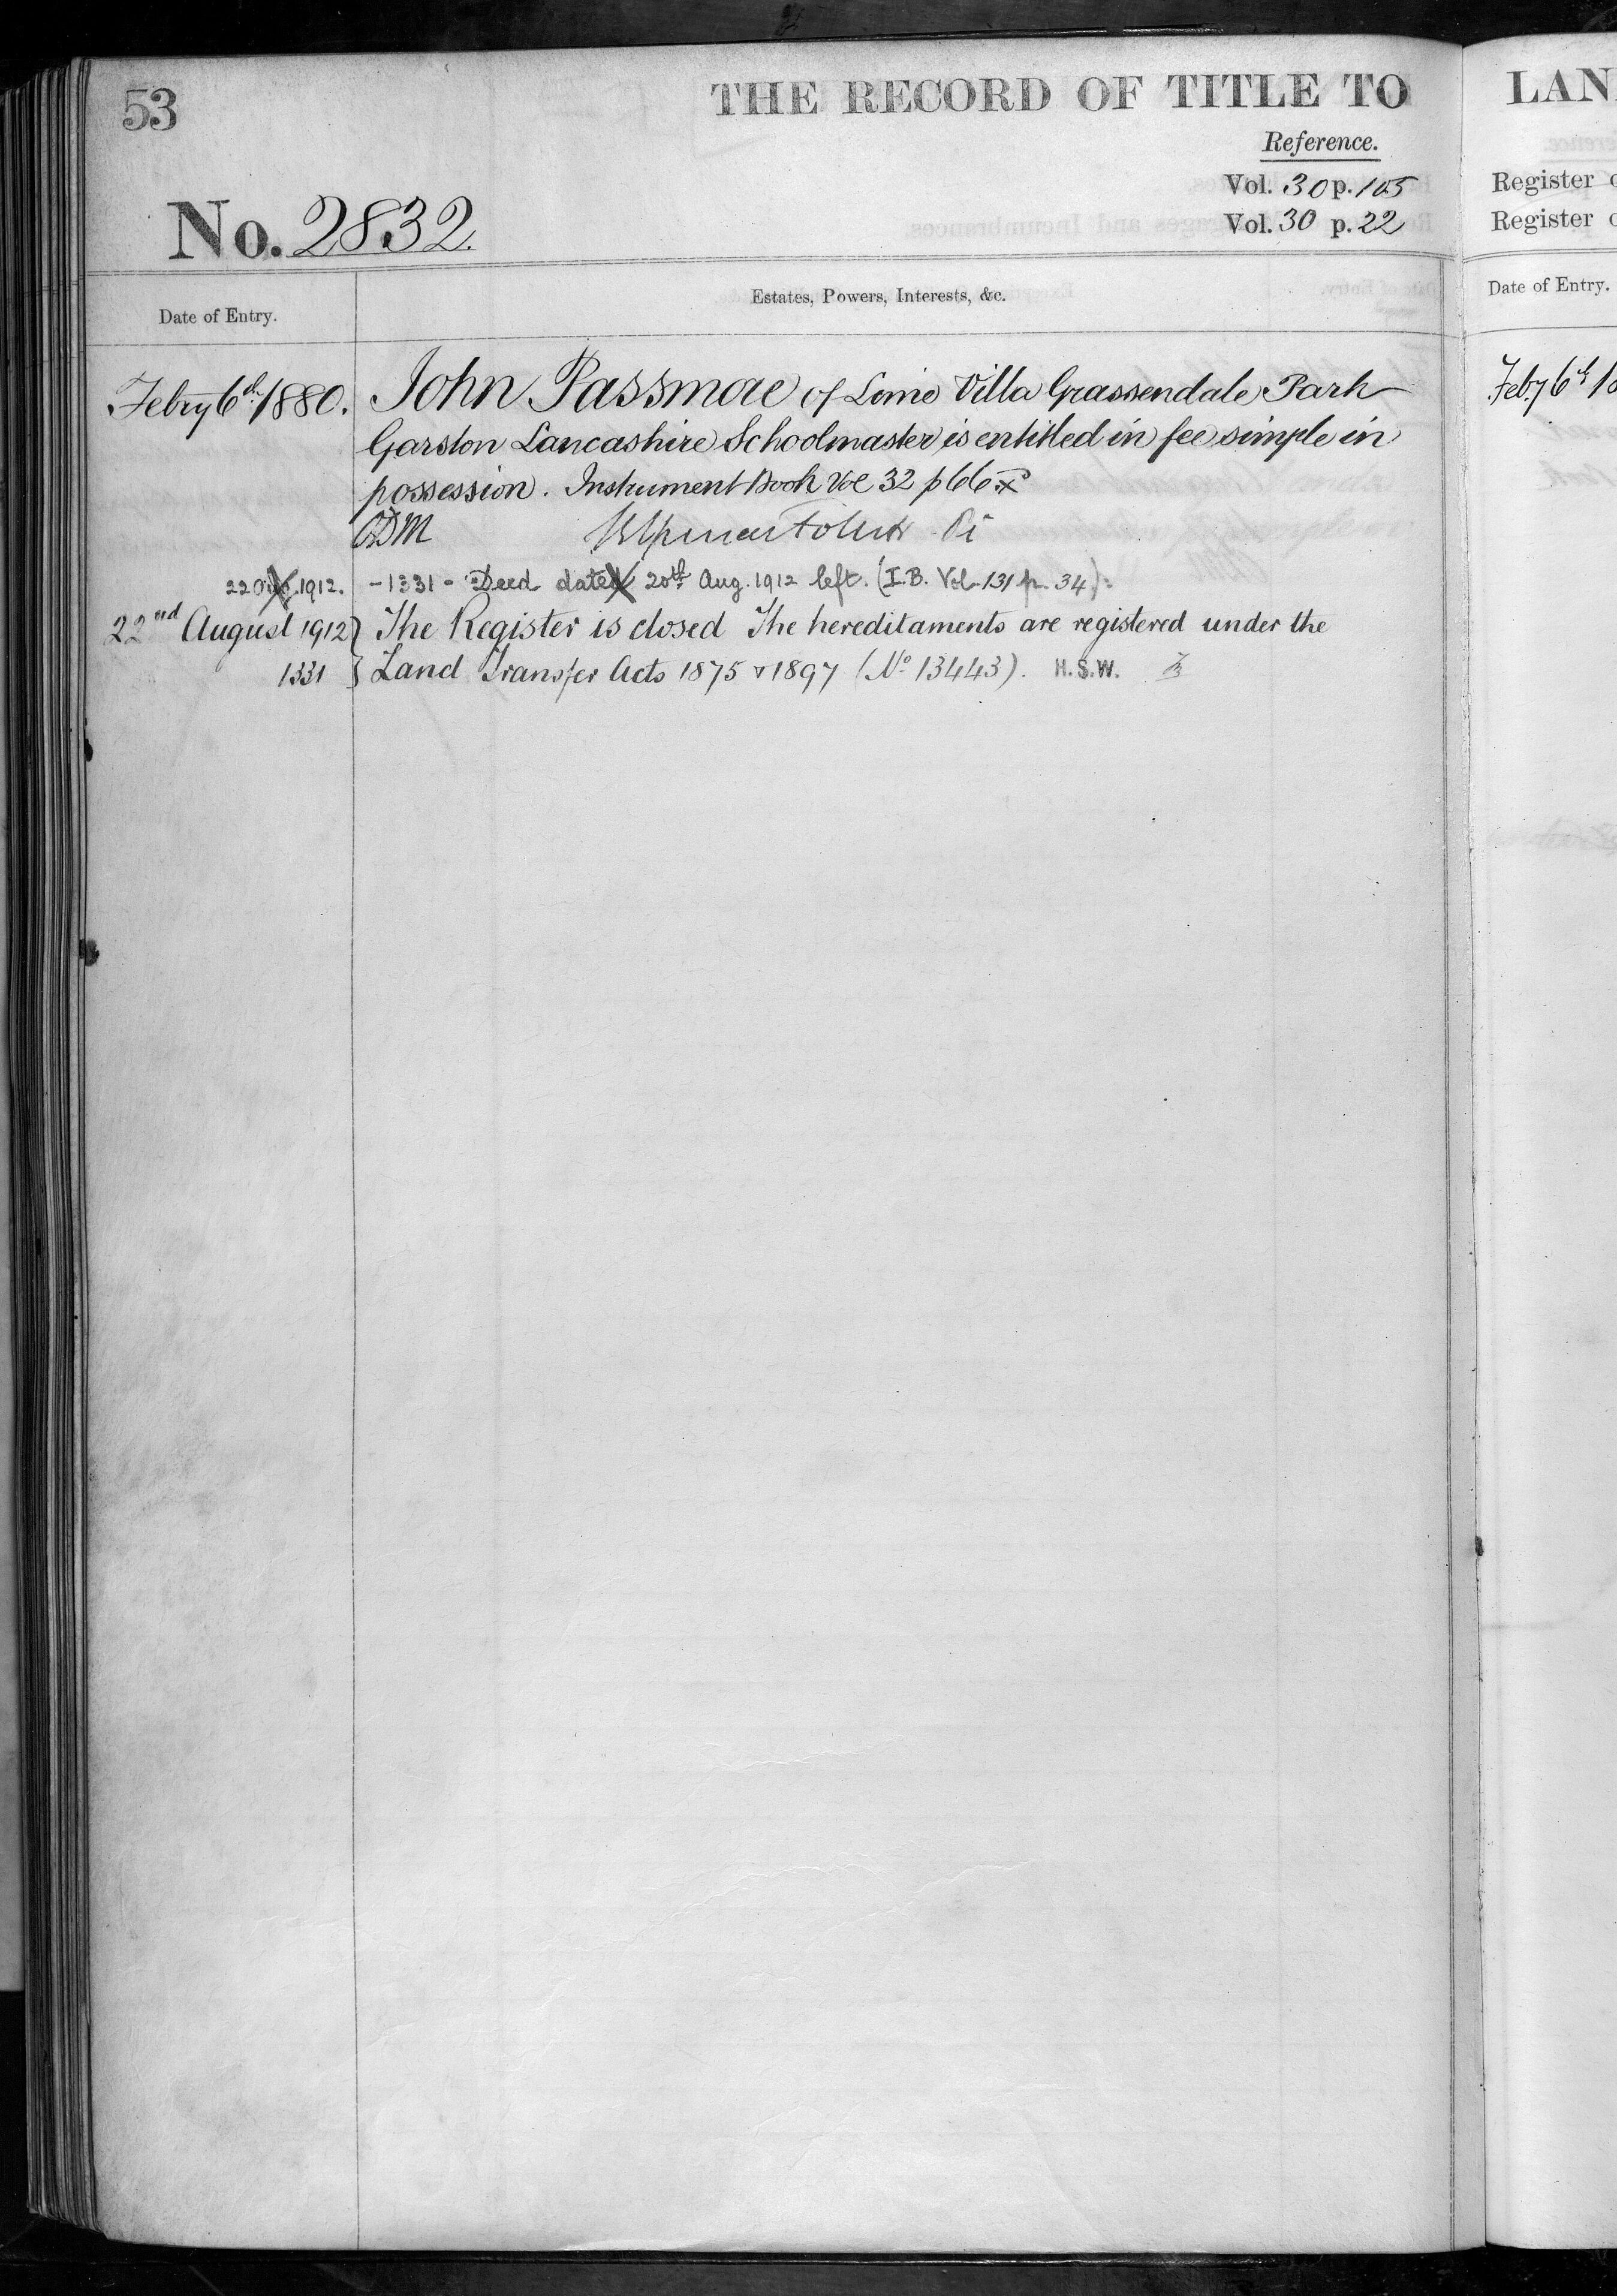 53
THE RECORD OF TITLE TO
Reference.
Vol. 30 p. 105
Vol. 30 p. 22
No. 2832.
Date of Entry.
Estates, Powers, Interests, &c.
Febry 6th 1880.
John Passmore of Lime Villa Grassendale Park
Garston Lancashire Schoolmaster is entitled in fee simple in
possession. Instrument Book Vol 32 p 66
22 Aug. 1912.
-1331- Deed dated 20th Aug. 1912 left. (I.B. Vol. 131 p. 34).
22nd August 1912
1331
The Register is closed The hereditaments are registered under the
Land Transfer Acts 1875 & 1897 (No 13443). H.S.W.
LAN
Register
Register
Date of Entry.
Feby 6th 18